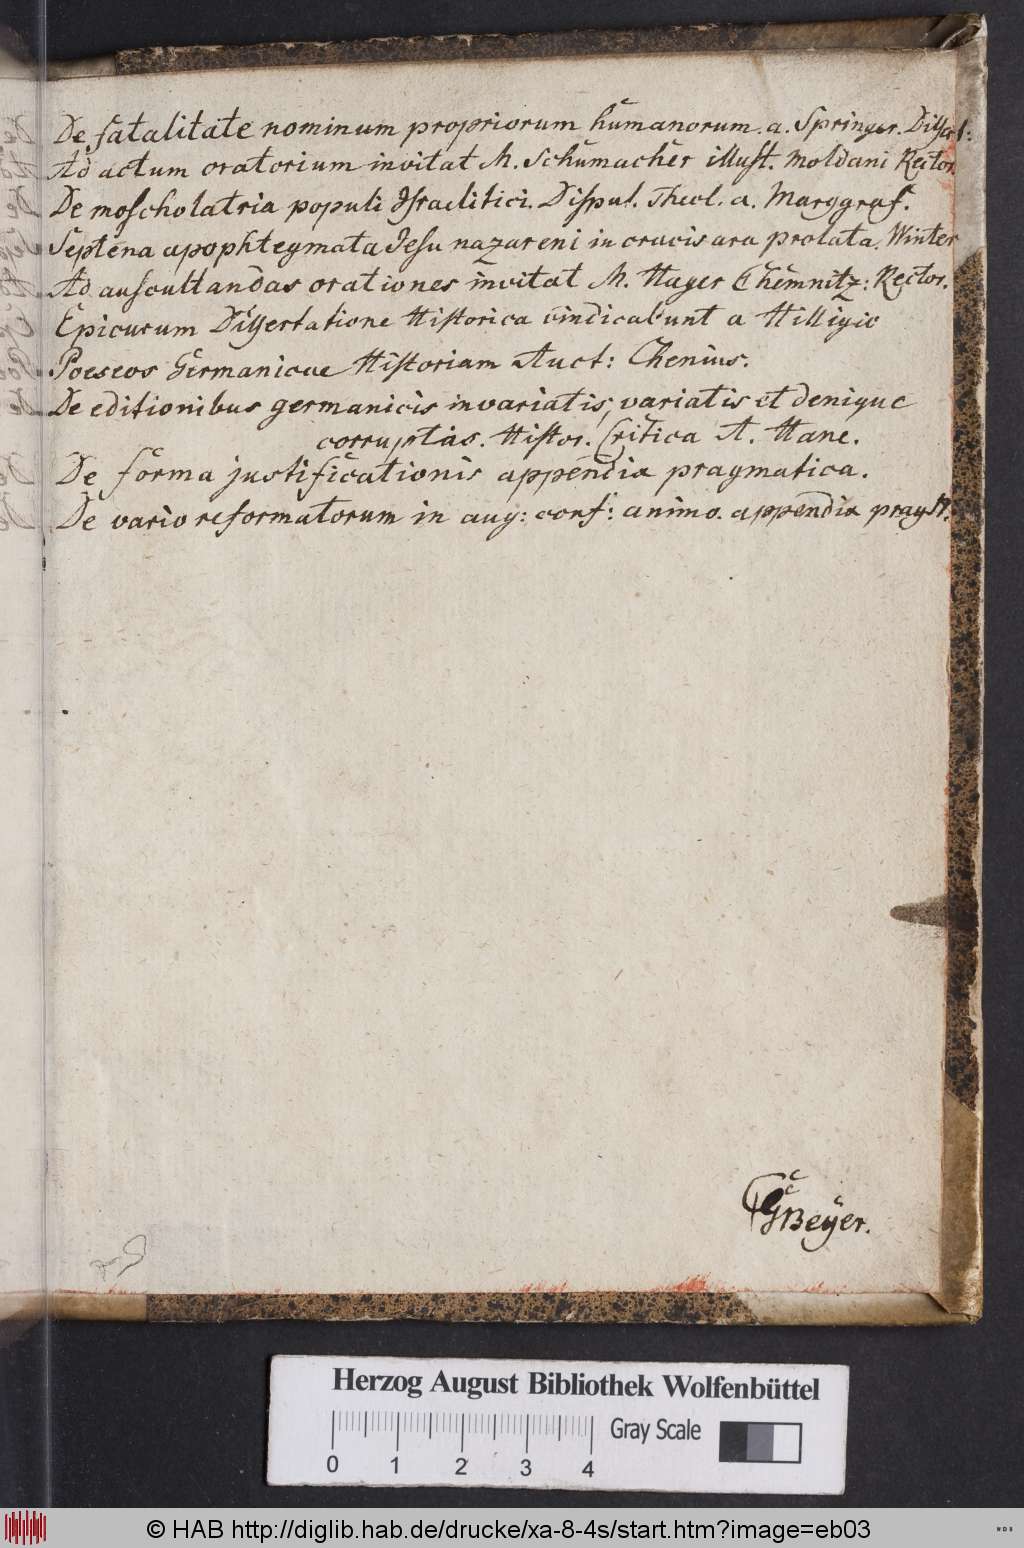 De fatalitate nominum propriorum humanorum. a. Springer. Dissert:
Ad actum oratorium invitat M. Schumacher illust. Moldani Rector.
De moscholatria populi Israelitici. Disput. Theol. a. Marggraf.
Septena apophtegmata Jesu nazareni in crucis ara prolata. Winter
Ad auscultandas orationes invitat M. Hager Chemnitz: Rector.
Epicurum Dissertatione Historica vindicabunt a Hilligio
Poeseos Germanicae Historiam Auct: Chenius.
De editionibus germanicis invariatis, variatis et denique
corruptis. Histor. Critica A. Hane.
De forma justificationis appendix pragmatica.
De vario reformatorum in aug: conf: animo. appendix
Beÿer.
Herzog August Bibliothek Wolfenbüttel
0 1 2 3 4 Gray Scale
© HAB http://diglib.hab.de/drucke/xa-8-4s/start.htm?image=eb03